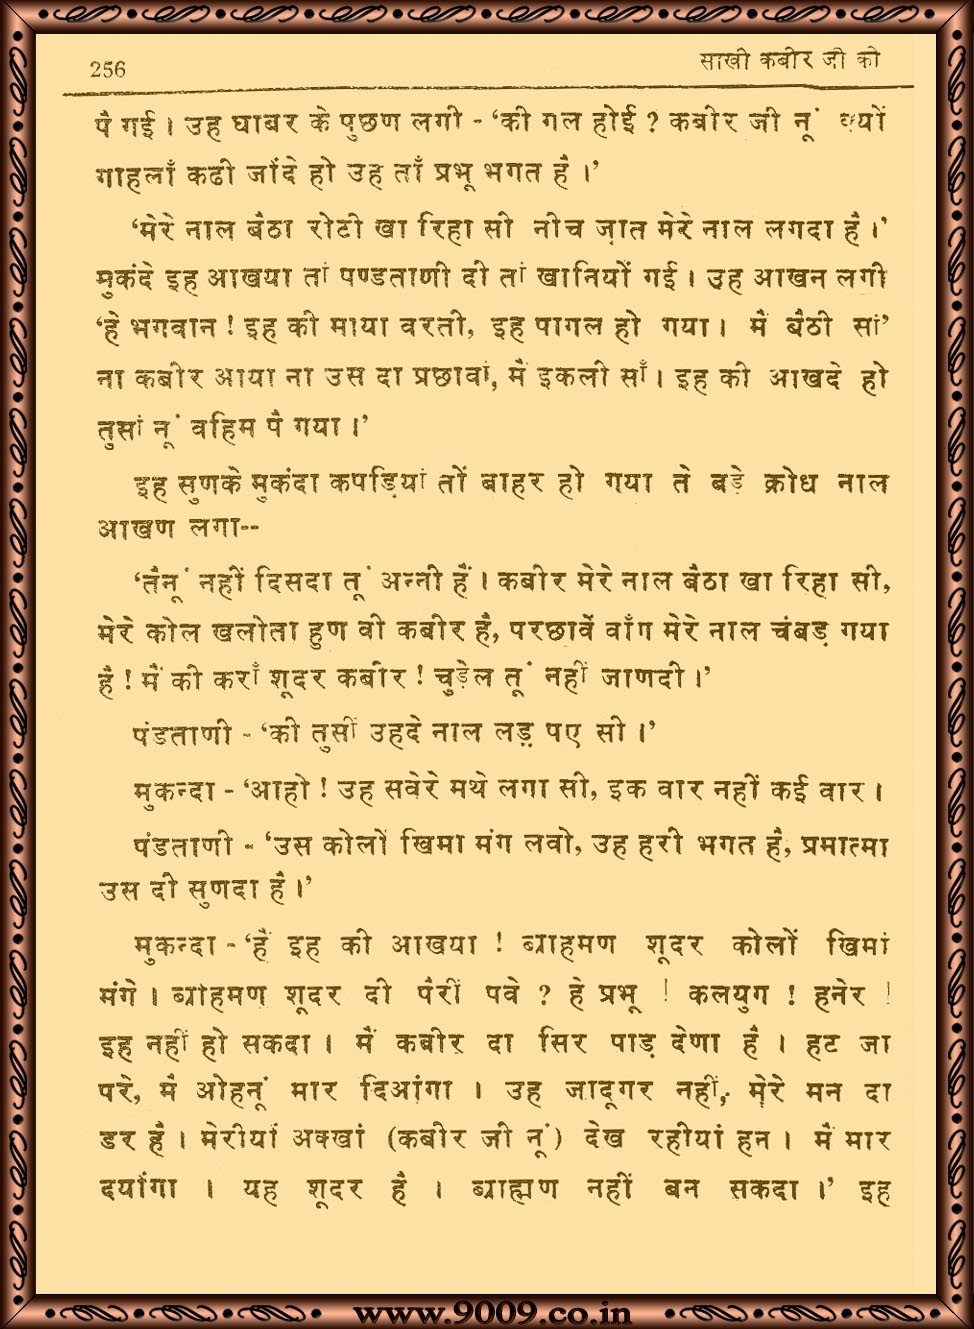 256
साखी कबीर जी की
पै गई । उह घाबर के पुछण लगी - ‘की गल होई ? कबीर जी नूं क्यों
गाहलाँ कढी जाँदे हो उह ताँ प्रभू भगत है ।’
‘मेरे नाल बैठा रोटी खा रिहा सी नीच ज़ात मेरे नाल लगदा है ।’
मुकंदे इह आखया तां पण्डताणी दी तां खानियों गई । उह आखन लगी
‘हे भगवान ! इह की माया वरती, इह पागल हो गया । मैं बैठी सां’
ना कबीर आया ना उस दा प्रछावां, मैं इकली साँ । इह की आखदे हो
तुसां नूं वहिम पै गया ।’
इह सुणके मुकंदा कपड़ियां तों बाहर हो गया ते बड़े क्रोध नाल
आखण लगा--
‘तैनूं नहीं दिसदा तूं अन्नी हैं । कबीर मेरे नाल बैठा खा रिहा सी,
मेरे कोल खलोता हुण वी कबीर है, परछावें वाँग मेरे नाल चंबड़ गया
है ! मैं की कराँ शूदर कबीर ! चुड़ेल तूं नहीं जाणदी ।’
पंडताणी - ‘की तुसीं उहदे नाल लड़ पए सी ।’
मुकन्दा - ‘आहो ! उह सवेरे मथे लगा सी, इक वार नहीं कई वार ।
पंडताणी - ‘उस कोलों खिमा मंग लवो, उह हरी भगत है, प्रमात्मा
उस दी सुणदा है ।’
मुकन्दा - ‘हैं इह की आखया ! ब्राहमण शूदर कोलों खिमां
मंगे । ब्राहमण शूदर दी पैरीं पवे ? हे प्रभू ! कलयुग ! हनेर !
इह नहीं हो सकदा । मैं कबीर दा सिर पाड़ देणा है । हट जा
परे, मैं ओहनूं मार दिआंगा । उह जादूगर नहीं, मेरे मन दा
डर है । मेरीयां अक्खां (कबीर जी नूं) देख रहीयां हन । मैं मार
दयाँगा । यह शूदर है । ब्राह्मण नहीं बन सकदा ।’ इह
www.9009.co.in